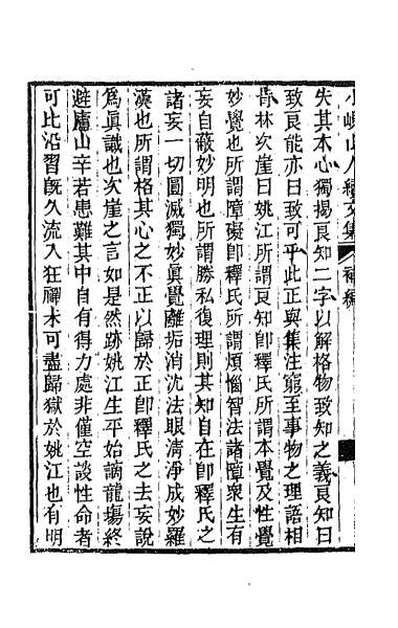 小峴山人續文集 補編
失其本心獨揭良知二字以解格物致知之義良知曰
致良能亦曰致可乎此正與集注窮至事物之理語相
背林次崖曰姚江所謂良知卽釋氏所謂本覺及性覺
妙覺也所謂障礙卽釋氏所謂煩惱智法諸障衆生有
妄自蔽妙明也所謂勝私復理則其知自在卽釋氏之
諸妄一切圓滅獨妙眞覺離垢消沈法眼清淨成妙羅
漢也所謂格其心之不正以歸於正卽釋氏之去妄說
爲眞識也次崖之言如是然跡姚江生平始謫龍場終
避廬山辛若患難其中自有得力處非僅空談性命者
可比沿習旣久流入狂禪未可盡歸獄於姚江也有明